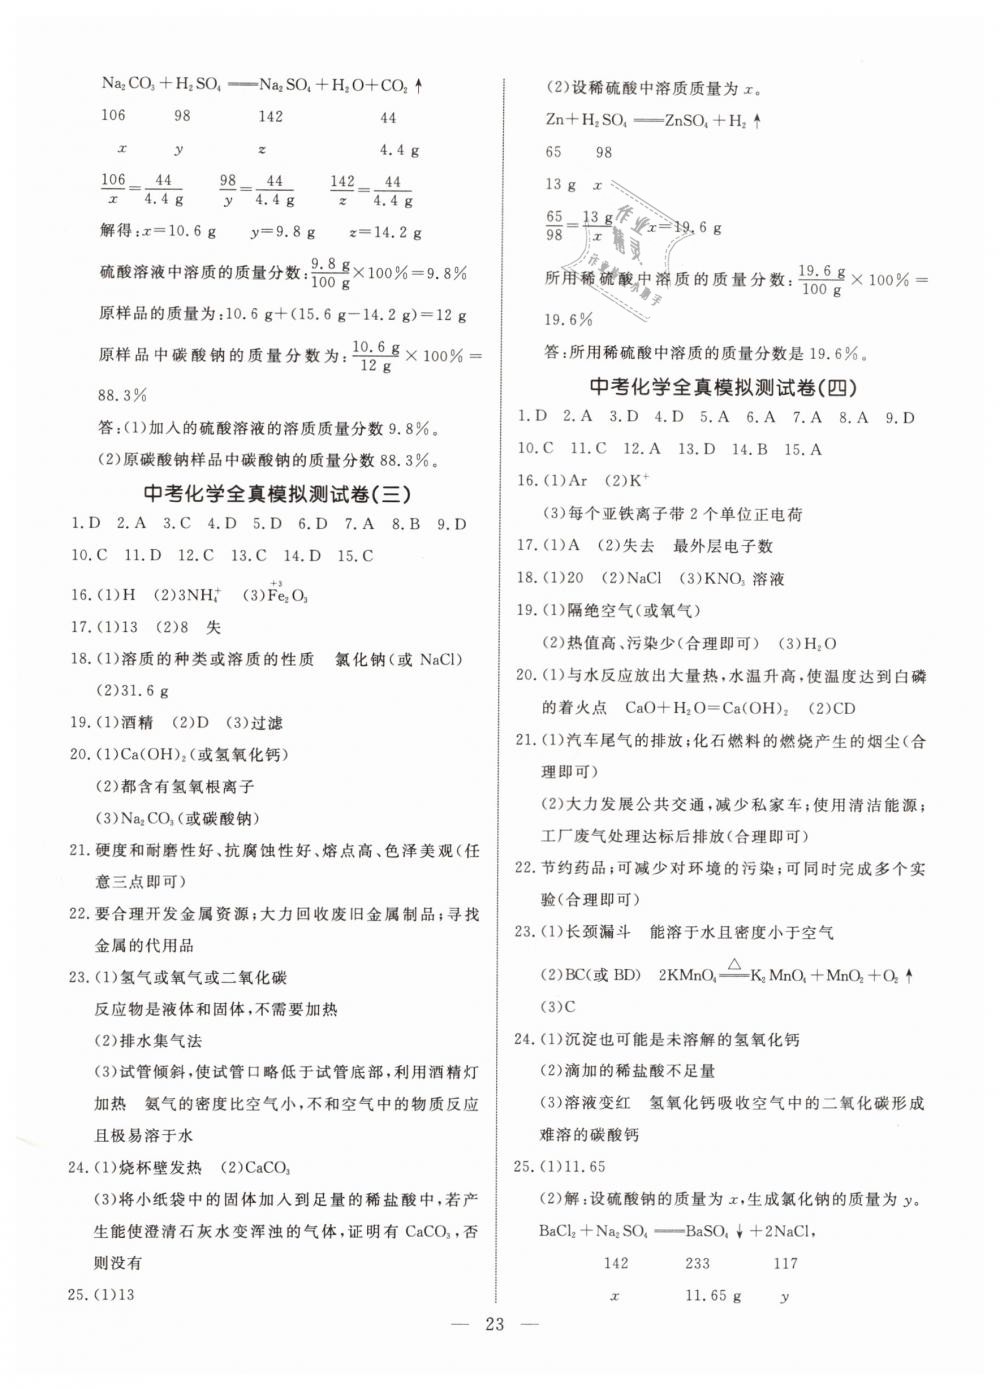 Na₂CO₃+H₂SO₄══Na₂SO₄+H₂O+CO₂↑
106 98 142 44
x y z 4.4 g
106/x=44/4.4 g 98/y=44/4.4 g 142/z=44/4.4 g
解得:x=10.6 g y=9.8 g z=14.2 g
硫酸溶液中溶质的质量分数:9.8 g/100 g×100%=9.8%
原样品的质量为:10.6 g+(15.6 g−14.2 g)=12 g
原样品中碳酸钠的质量分数为:10.6 g/12 g×100%=
88.3%
答:(1)加入的硫酸溶液的溶质质量分数9.8%。
(2)原碳酸钠样品中碳酸钠的质量分数88.3%。
中考化学全真模拟测试卷(三)
1.D 2.A 3.C 4.D 5.D 6.D 7.A 8.B 9.D
10.C 11.D 12.C 13.C 14.D 15.C
16.(1)H (2)3NH₄⁺ (3)Fe₂O₃ +3
17.(1)13 (2)8 失
18.(1)溶质的种类或溶质的性质 氯化钠(或 NaCl)
(2)31.6 g
19.(1)酒精 (2)D (3)过滤
20.(1)Ca(OH)₂(或氢氧化钙)
(2)都含有氢氧根离子
(3)Na₂CO₃(或碳酸钠)
21.硬度和耐磨性好、抗腐蚀性好、熔点高、色泽美观(任
意三点即可)
22.要合理开发金属资源;大力回收废旧金属制品;寻找
金属的代用品
23.(1)氢气或氧气或二氧化碳
反应物是液体和固体,不需要加热
(2)排水集气法
(3)试管倾斜,使试管口略低于试管底部,利用酒精灯
加热 氨气的密度比空气小,不和空气中的物质反应
且极易溶于水
24.(1)烧杯壁发热 (2)CaCO₃
(3)将小纸袋中的固体加入到足量的稀盐酸中,若产
生能使澄清石灰水变浑浊的气体,证明有 CaCO₃,否
则没有
25.(1)13
(2)设稀硫酸中溶质质量为 x。
Zn+H₂SO₄══ZnSO₄+H₂↑
65 98
13 g x
65/98=13 g/x x=19.6 g
所用稀硫酸中溶质的质量分数:19.6 g/100 g×100%=
19.6%
答:所用稀硫酸中溶质的质量分数是 19.6%。
中考化学全真模拟测试卷(四)
1.D 2.A 3.D 4.D 5.A 6.A 7.A 8.A 9.D
10.C 11.C 12.A 13.D 14.B 15.A
16.(1)Ar (2)K⁺
(3)每个亚铁离子带 2 个单位正电荷
17.(1)A (2)失去 最外层电子数
18.(1)20 (2)NaCl (3)KNO₃ 溶液
19.(1)隔绝空气(或氧气)
(2)热值高、污染少(合理即可) (3)H₂O
20.(1)与水反应放出大量热,水温升高,使温度达到白磷
的着火点 CaO+H₂O=Ca(OH)₂ (2)CD
21.(1)汽车尾气的排放;化石燃料的燃烧产生的烟尘(合
理即可)
(2)大力发展公共交通,减少私家车;使用清洁能源;
工厂废气处理达标后排放(合理即可)
22.节约药品;可减少对环境的污染;可同时完成多个实
验(合理即可)
23.(1)长颈漏斗 能溶于水且密度小于空气
(2)BC(或 BD) 2KMnO₄══△K₂MnO₄+MnO₂+O₂↑
(3)C
24.(1)沉淀也可能是未溶解的氢氧化钙
(2)滴加的稀盐酸不足量
(3)溶液变红 氢氧化钙吸收空气中的二氧化碳形成
难溶的碳酸钙
25.(1)11.65
(2)解:设硫酸钠的质量为 x,生成氯化钠的质量为 y。
BaCl₂+Na₂SO₄══BaSO₄↓+2NaCl,
142 233 117
x 11.65 g y
作业
精灵
— 23 —